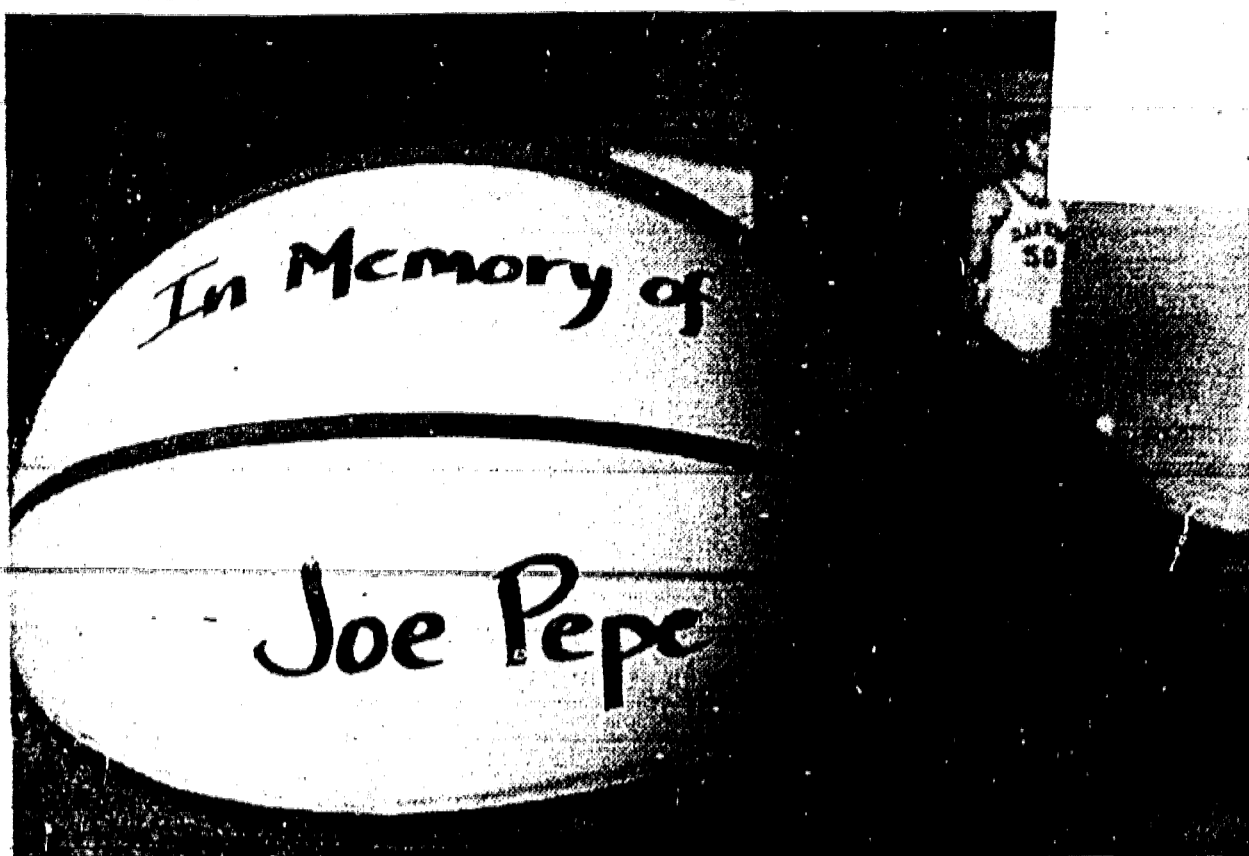 In Memory of
Joe Pepe
50